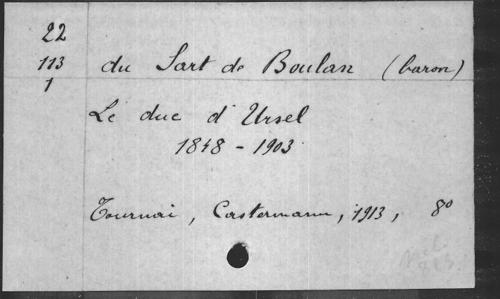 22
113
1
du Sart de Boulan (baron)
Le duc d'Ursel
1848 - 1903
Tournai, Castermann, 1913, 8°